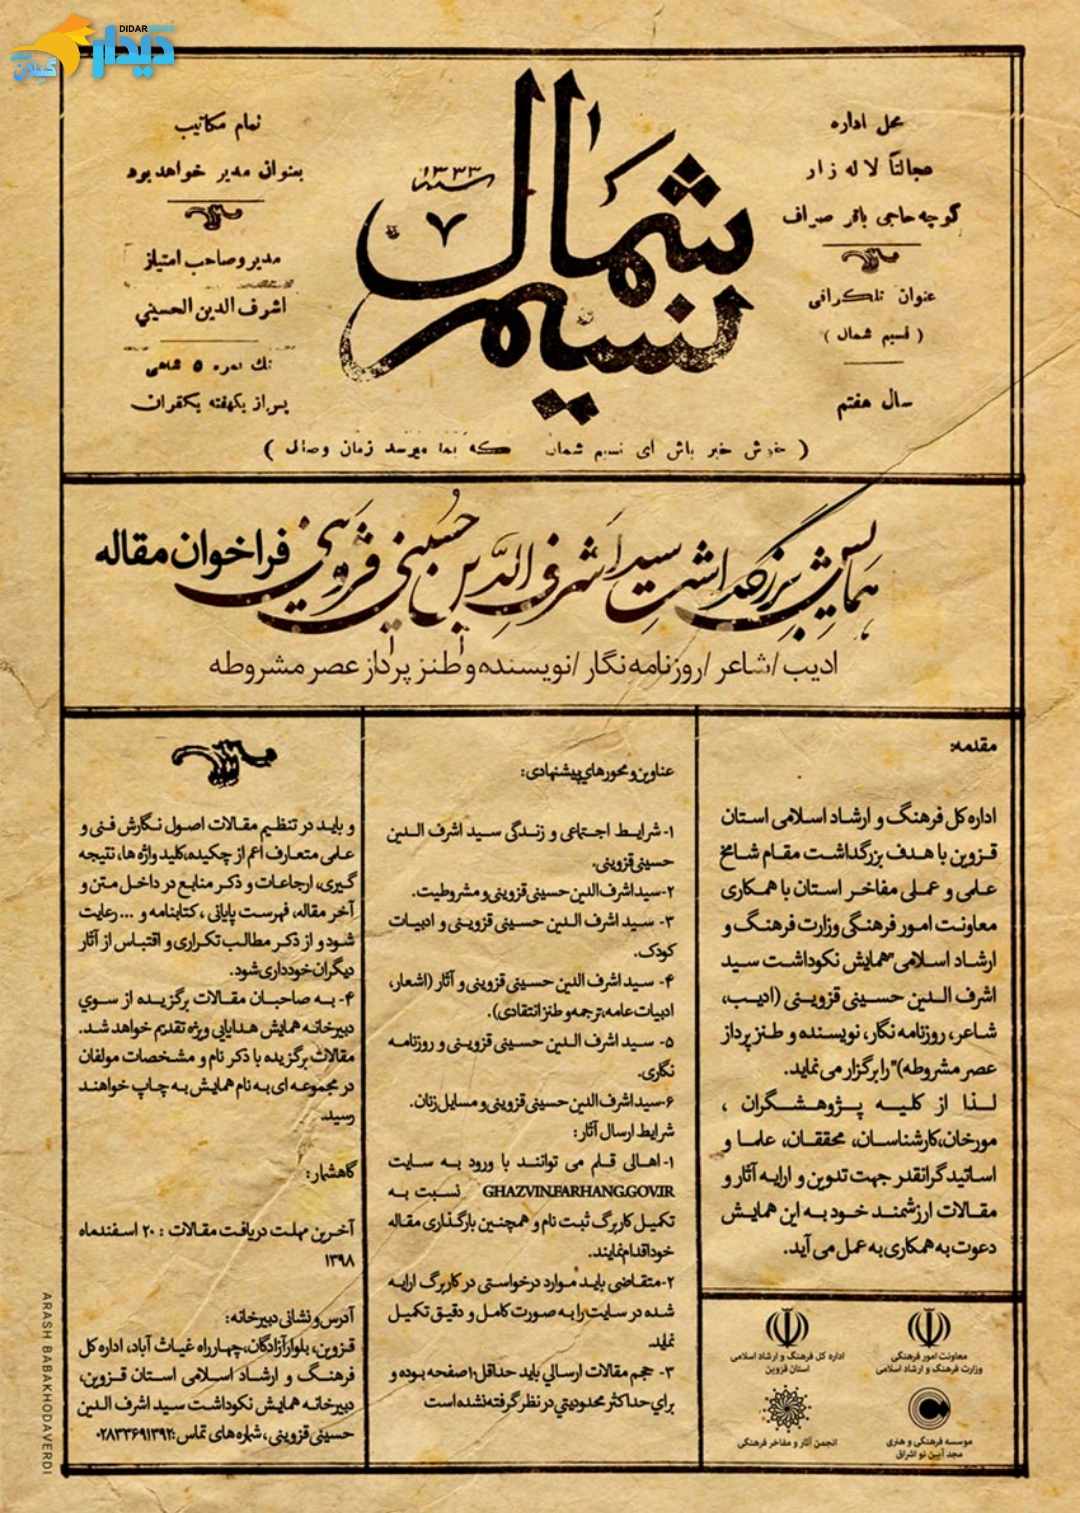 DIDAR
دیدار
گیلان
محل اداره
عجالتاً لاله زار
کوچه حاجی باقر صراف
عنوان تلگرافی
( نسیم شمال )
سال هفتم
نسیم شمال
سنه ۱۳۳۳
۷
تمام مکاتیب
بعنوان مدیر خواهد بود
مدیر و صاحب امتیاز
اشرف الدین الحسینی
تک نمره ۵ شاهی
پس از یکهفته یکقران
( خوش خبر باش ای نسیم شمال که بما میرسد زمان وصال )
همایش بزرگداشت سید اشرف الدین حسینی قزوینی فراخوان مقاله
ادیب/شاعر/روزنامه نگار/نویسنده و طنز پرداز عصر مشروطه
مقدمه:
اداره کل فرهنگ و ارشاد اسلامی استان
قزوین با هدف بزرگداشت مقام شامخ
علمی و عملی مفاخر استان با همکاری
معاونت امور فرهنگی وزارت فرهنگ و
ارشاد اسلامی"همایش نکوداشت سید
اشرف الدین حسینی قزوینی (ادیب،
شاعر، روزنامه نگار، نویسنده و طنز پرداز
عصر مشروطه)" را برگزار می نماید.
لذا از کلیه پژوهشگران ،
مورخان،کارشناسان، محققان، علما و
اساتید گرانقدر جهت تدوین و ارایه آثار و
مقالات ارزشمند خود به این همایش
دعوت به همکاری به عمل می آید.
معاونت امور فرهنگی
وزارت فرهنگ و ارشاد اسلامی
اداره کل فرهنگ و ارشاد اسلامی
استان قزوین
موسسه فرهنگی و هنری
مجد آیین نو اشراق
انجمن آثار و مفاخر فرهنگی
عناوین و محورهای پیشنهادی:
۱- شرایط اجتماعی و زندگی سید اشرف الدین
حسینی قزوینی.
۲-سید اشرف الدین حسینی قزوینی و مشروطیت.
۳- سید اشرف الدین حسینی قزوینی و ادبیات
کودک.
۴- سید اشرف الدین حسینی قزوینی و آثار (اشعار،
ادبیات عامه،ترجمه و طنز انتقادی).
۵- سید اشرف الدین حسینی قزوینی و روزنامه
نگاری.
۶-سید اشرف الدین حسینی قزوینی و مسایل زنان.
شرایط ارسال آثار:
۱- اهالی قلم می توانند با ورود به سایت
GHAZVIN.FARHANG.GOV.IR نسبت به
تکمیل کاربرگ ثبت نام و همچنین بارگذاری مقاله
خود اقدام نمایند.
۲-متقاضی باید موارد درخواستی در کاربرگ ارایه
شده در سایت را به صورت کامل و دقیق تکمیل
نماید.
۳- حجم مقالات ارسالي باید حداقل۱۰صفحه بوده و
براي حداکثر محدوديتي در نظر گرفته نشده است
و باید در تنظیم مقالات اصول نگارش فنی و
علمی متعارف اعم از چکیده،کلید واژه ها، نتیجه
گیری، ارجاعات و ذکر منابع در داخل متن و
آخر مقاله، فهرست پایانی ، کتابنامه و ...رعایت
شود و از ذکر مطالب تکراری و اقتباس از آثار
دیگران خودداری شود.
۴- به صاحبان مقالات برگزیده از سوي
دبیرخانه همایش هدایایی ویژه تقدیم خواهد شد.
مقالات برگزیده با ذکر نام و مشخصات مولفان
در مجموعه ای به نام همایش به چاپ خواهند
رسید.
گاهشمار:
آخرین مهلت دریافت مقالات : ۲۰ اسفندماه
۱۳۹۸
آدرس و نشانی دبیرخانه:
قزوین، بلوار آزادگان،چهارراه غیاث آباد، اداره کل
فرهنگ و ارشاد اسلامی استان قزوین،
دبیرخانه همایش نکوداشت سید اشرف الدین
حسینی قزوینی ، شماره های تماس:۰۲۸۳۳۶۹۱۳۹۲
ARASH BABAKHODAVERDI